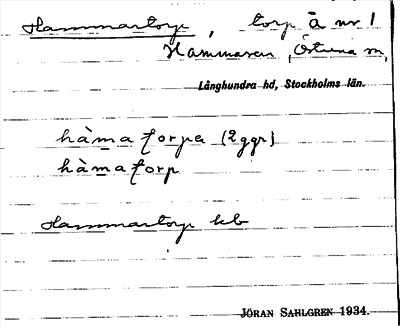 Hammartorp, torp å nr 1
Hammaren, Östuna sn,
Långhundra hd, Stockholms län.
hàmaʈorpa (2ggr)
hàmaʈorp
Hammartorp kb
JÖRAN SAHLGREN 1934.